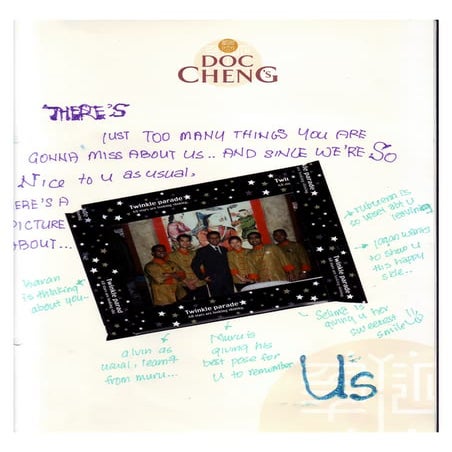 DOC
CHENG'S
THERE'S
JUST TOO MANY THINGS YOU ARE
GONNA MISS ABOUT US.. AND SINCE WE'RE SO
NICE to u as usual,
ERE'S A
PICTURE
ABOUT...
Twinkle parade
All stars are looking shining
Twin
All sta
Twinkle parad
Twinkle parade
All stars are looking shining
is
so upset u
leaving
wants
to show u
his happy
side...
is thinking
about you..
alvin as
usual, leaning
from muru...
Muru's
giving his
best pose for
u to remember
Selime is
giving u her
sweetest !!
smile
Us